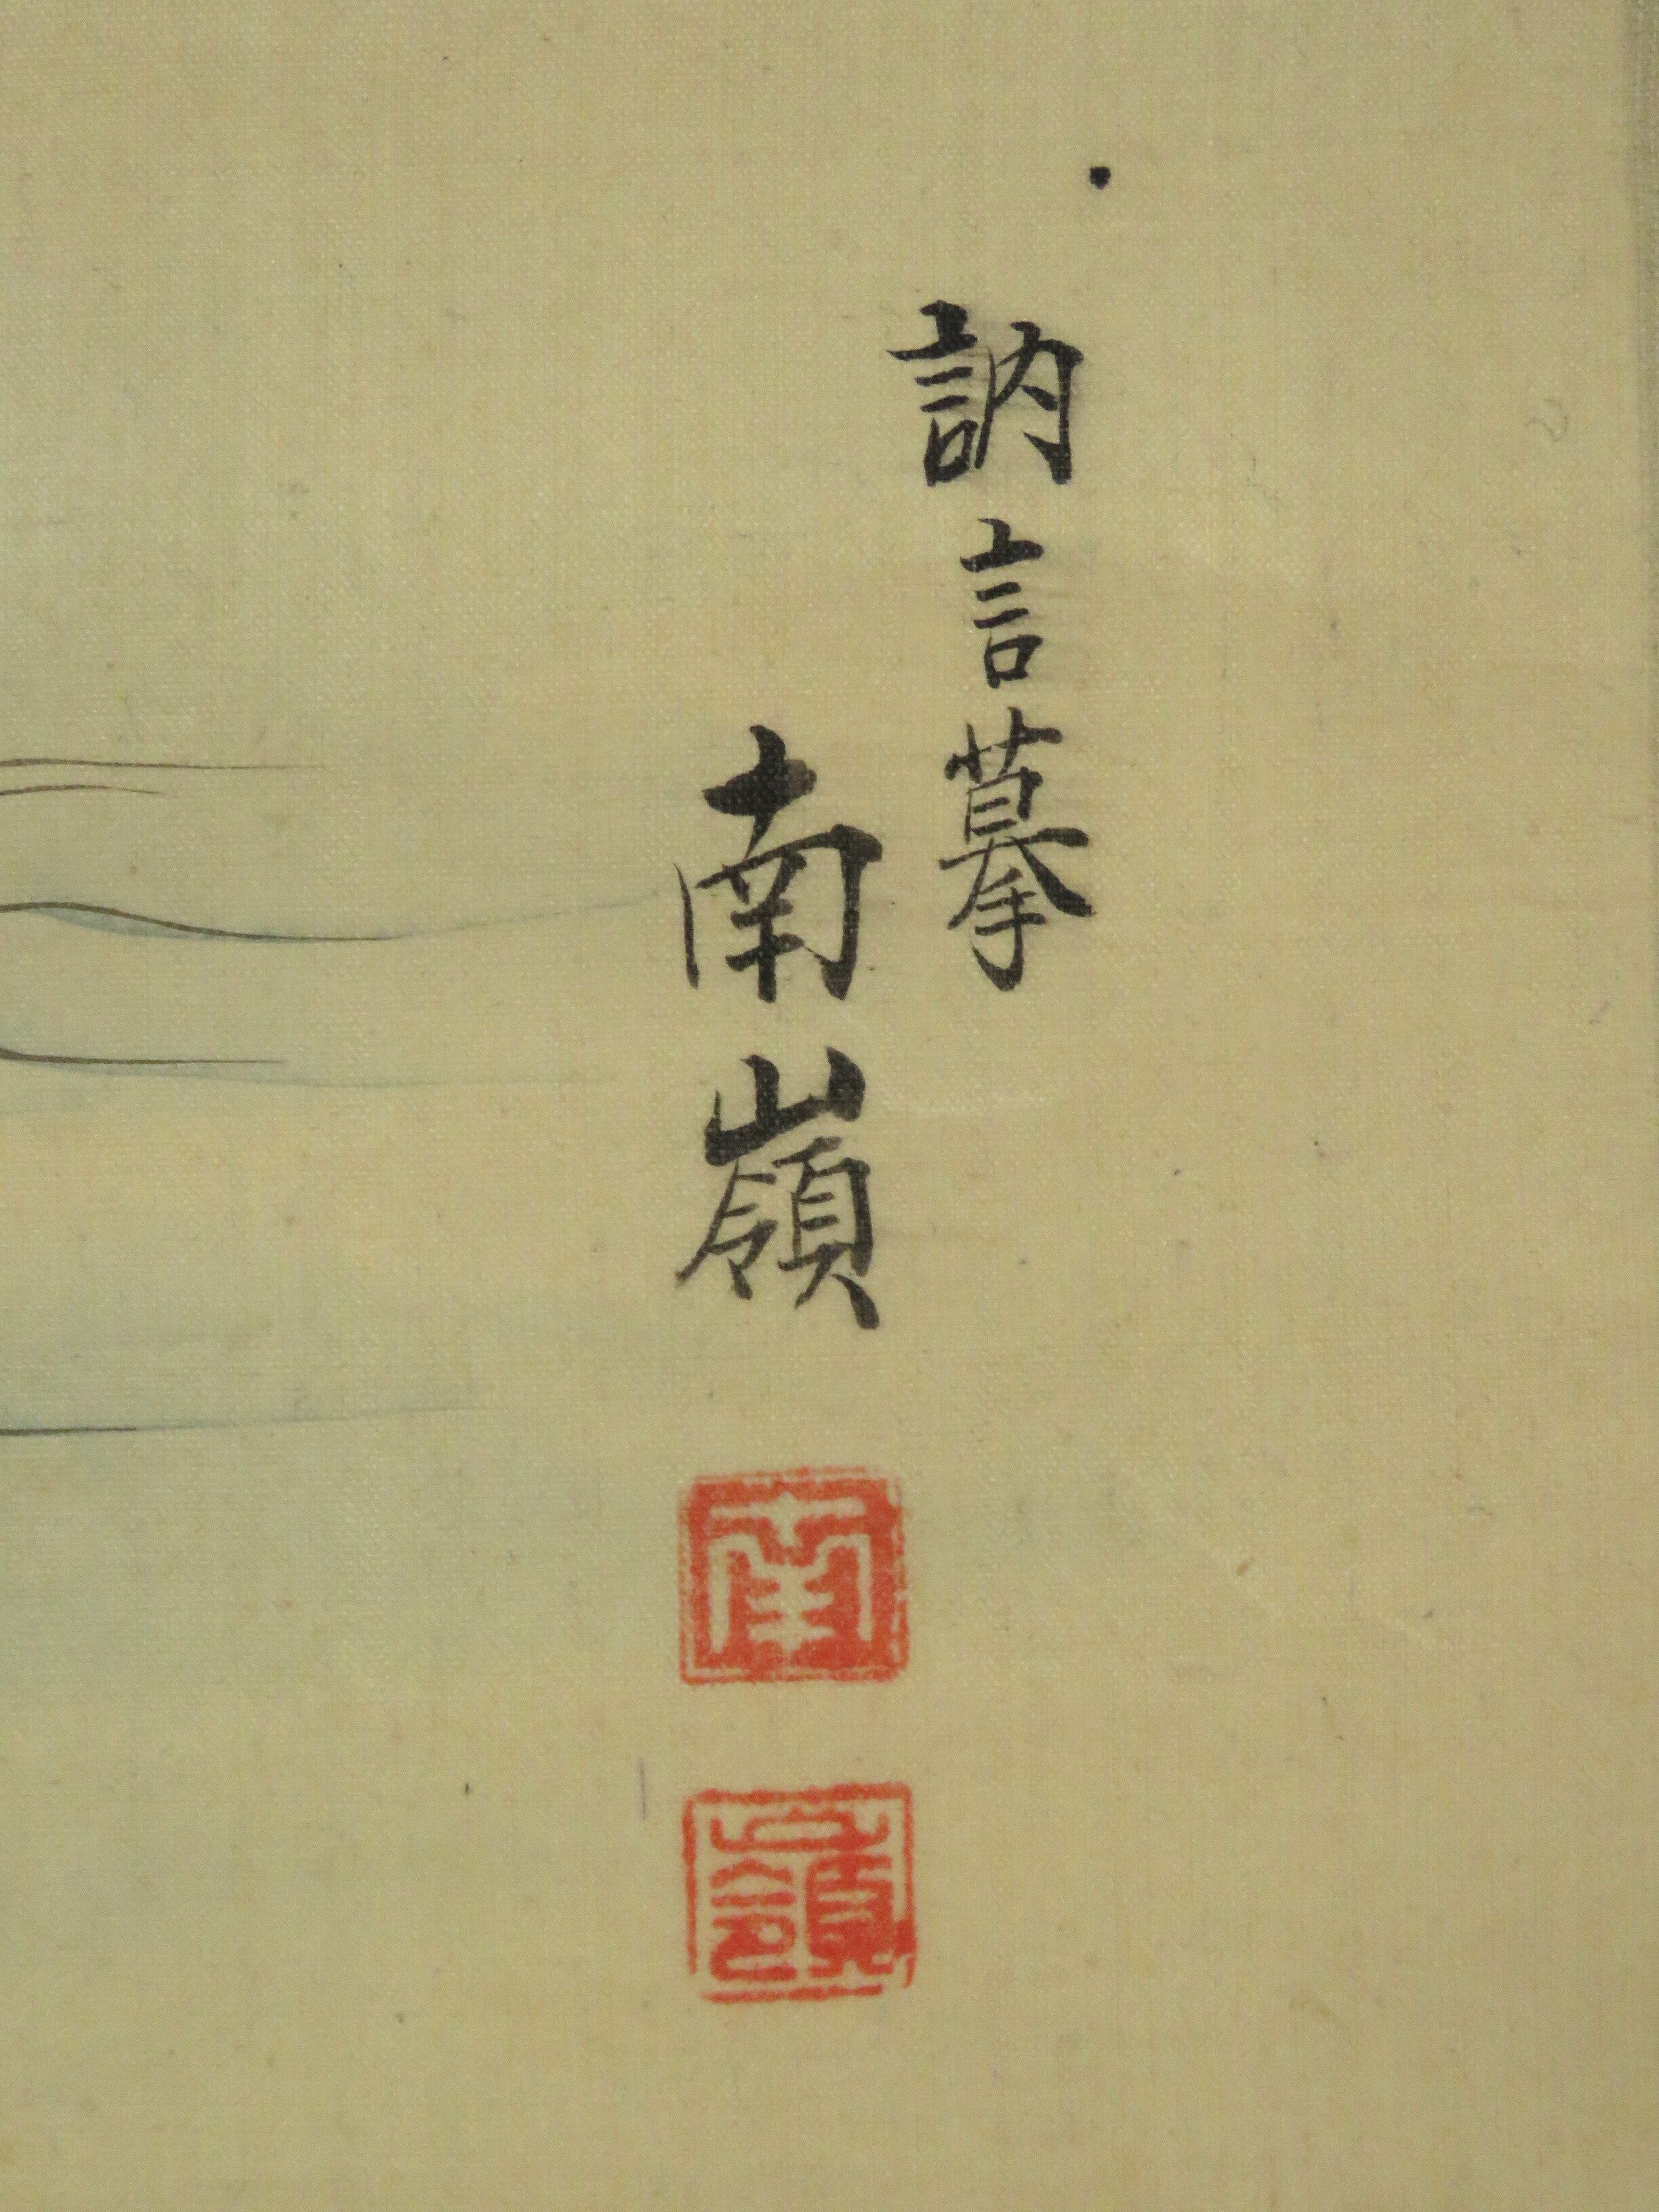 訥言摹
南嶺
南
嶺